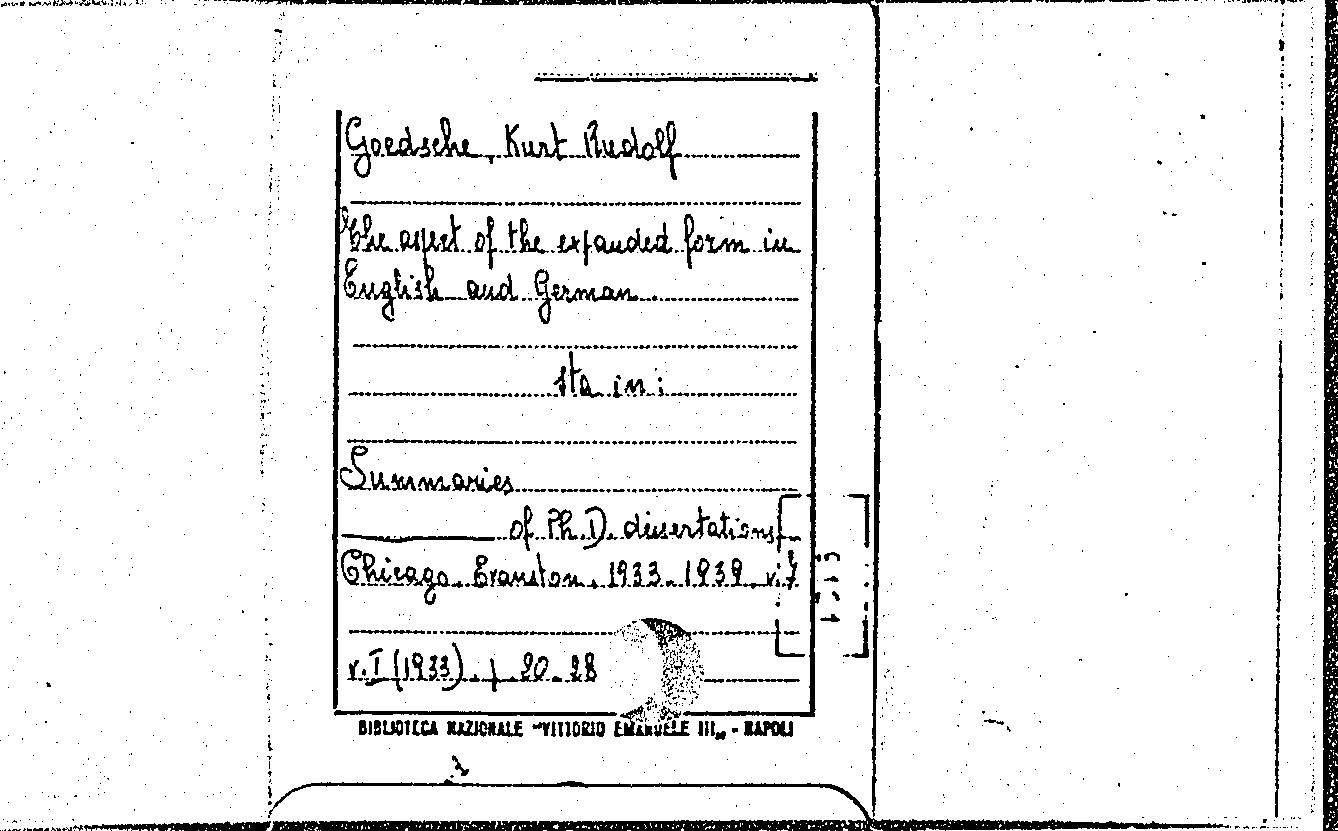 Goedsche, Kurt Rudolf
The aspect of the expanded form in
English and German.
sta in:
Summaries
of Ph.D. dissertations.
Chicago. Evanston. 1933-1939. v. 7
v. I (1933). p. 20-28
BIBLIOTECA NAZIONALE "VITTORIO EMANUELE III„ - NAPOLI